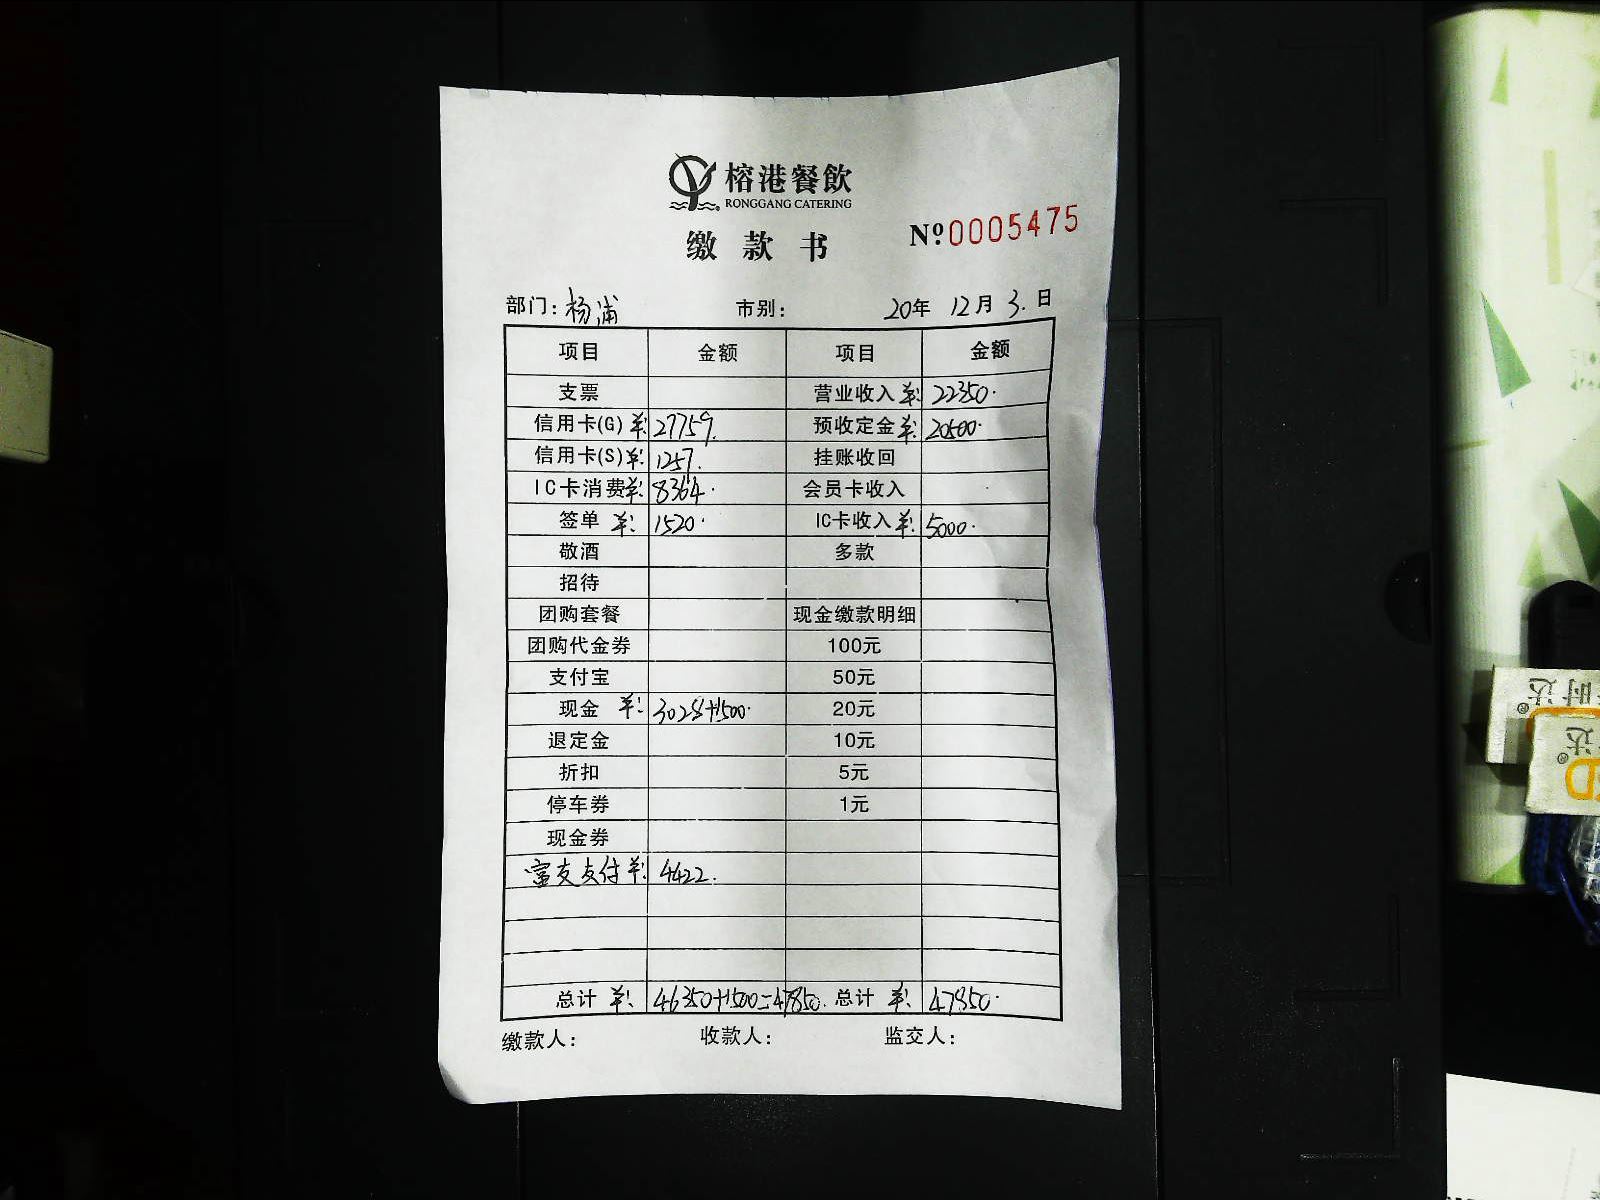 榕港餐飲
RONGGANG CATERING
缴款书
Nº:0005475
部门：杨浦 市别： 20年 12月 3.日
项目 金额 项目 金额
支票 营业收入 ¥: 22350.
信用卡(G) ¥: 27759. 预收定金 ¥: 20500.
信用卡(S) ¥: 1257. 挂账收回
IC卡消费 ¥: 8364. 会员卡收入
签单 ¥: 1520. IC卡收入 ¥: 5000.
敬酒 多款
招待
团购套餐 现金缴款明细
团购代金券 100元
支付宝 50元
现金 ¥: 3028+1500. 20元
退定金 10元
折扣 5元
停车券 1元
现金券
富友支付 ¥: 4422.
总计 ¥: 46350+1500=47850. 总计 ¥: 47850.
缴款人： 收款人： 监交人：